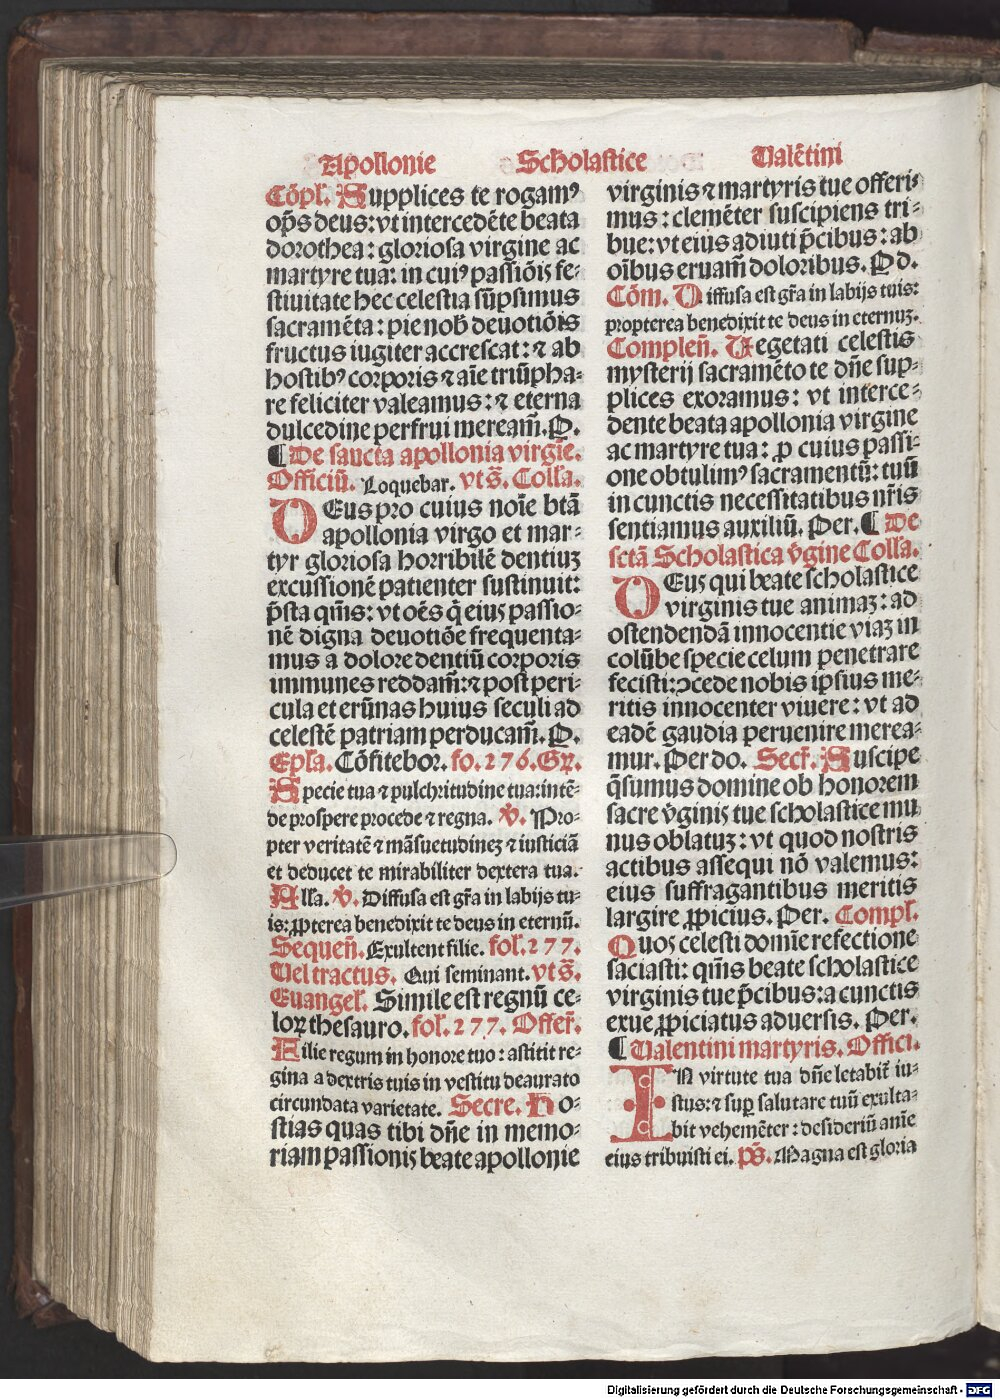 Apollonie Scholastice Valētini
Cōpl. Supplices te rogamꝰ
op̄s deus: vt intercedēte beata
dorothea: gloriosa virgine ac
martyre tua: in cuiꝰ passiōis fe⸗
stiuitate hec celestia sūpsimus
sacramēta: pie nob̄ deuotiōis
fructus iugiter accrescat: ⁊ ab
hostibꝰ corporis ⁊ aīe triūpha⸗
re feliciter valeamus: ⁊ eterna
dulcedine perfrui meream̄. P.
¶ De sancta apollonia virgīe.
Officiū. Loquebar. vt s̄. Colla.
DEus pro cuius noīe btā
apollonia virgo et mar⸗
tyr gloriosa horribilē dentiuꝫ
excussionē patienter sustinuit:
p̄sta q̄m̄s: vt oēs q̄ eius passio⸗
nē digna deuotiōe frequenta⸗
mus a dolore dentiū corporis
immunes reddam̄: ⁊ post peri⸗
cula et erūnas huius seculi ad
celestē patriam perducam̄. P.
Ep̄la. Cōfitebor. fo. 276. Gꝛ.
Specie tua ⁊ pulchritudine tua: intē⸗
de prospere procede ⁊ regna. v̄. Pro⸗
pter veritatē ⁊ māsuetudinez ⁊ iusticiā
et deducet te mirabiliter dextera tua.
Alla. v̄. Diffusa est gr̄a in labijs tu⸗
is: ꝓpterea benedixit te deus in eternū.
Sequen̄. Exultent filie. fol. 277.
Vel tractus. Qui seminant. vt s̄.
Euangel. Simile est regnū ce⸗
loꝝ thesauro. fol. 277. Offer̄.
Filie regum in honore tuo: astitit re⸗
gina a dextris tuis in vestitu deaurato
circundata varietate. Secre. Ho⸗
stias quas tibi dn̄e in memo⸗
riam passionis beate apollonie
virginis ⁊ martyris tue offeri⸗
mus: clemēter suscipiens tri⸗
bue: vt eius adiuti p̄cibus: ab
oībus eruam̄ doloribus. P d.
Cōm. Diffusa est gr̄a in labijs tuis:
propterea benedixit te deus in eternuꝫ.
Complen̄. Vegetati celestis
mysterij sacramēto te dn̄e sup⸗
plices exoramus: vt interce⸗
dente beata apollonia virgine
ac martyre tua: ꝓ cuius passi⸗
one obtulimꝰ sacramentū: tuū
in cunctis necessitatibus nr̄is
sentiamus auxiliū. Per. ¶ De
sctā Scholastica v̄gine Colla.
DEus qui beate scholastice
virginis tue animaꝫ: ad
ostendendā innocentie viaꝫ in
colūbe specie celum penetrare
fecisti: ↄcede nobis ipsius me⸗
ritis innocenter viuere: vt ad
eadē gaudia peruenire merea⸗
mur. Per do. Secr̄. Suscipe
q̄sumus domine ob honorem
sacre v̄ginis tue scholastice mu
nus oblatuꝫ: vt quod nostris
actibus assequi nō valemus:
eius suffragantibus meritis
largire ꝓpicius. Per. Compl.
Quos celesti domīe refectione
saciasti: q̄m̄s beate scholastice
virginis tue p̄cibus: a cunctis
exue ꝓpiciatus aduersis. Per.
¶ Valentini martyris. Offici.
IN virtute tua dn̄e letabit̄ iu⸗
stus: ⁊ suꝑ salutare tuū exulta⸗
bit vehemēter: desideriū anīe
eius tribuisti ei. ps̄. Magna est gloria
Digitalisierung gefördert durch die Deutsche Forschungsgemeinschaft - DFG